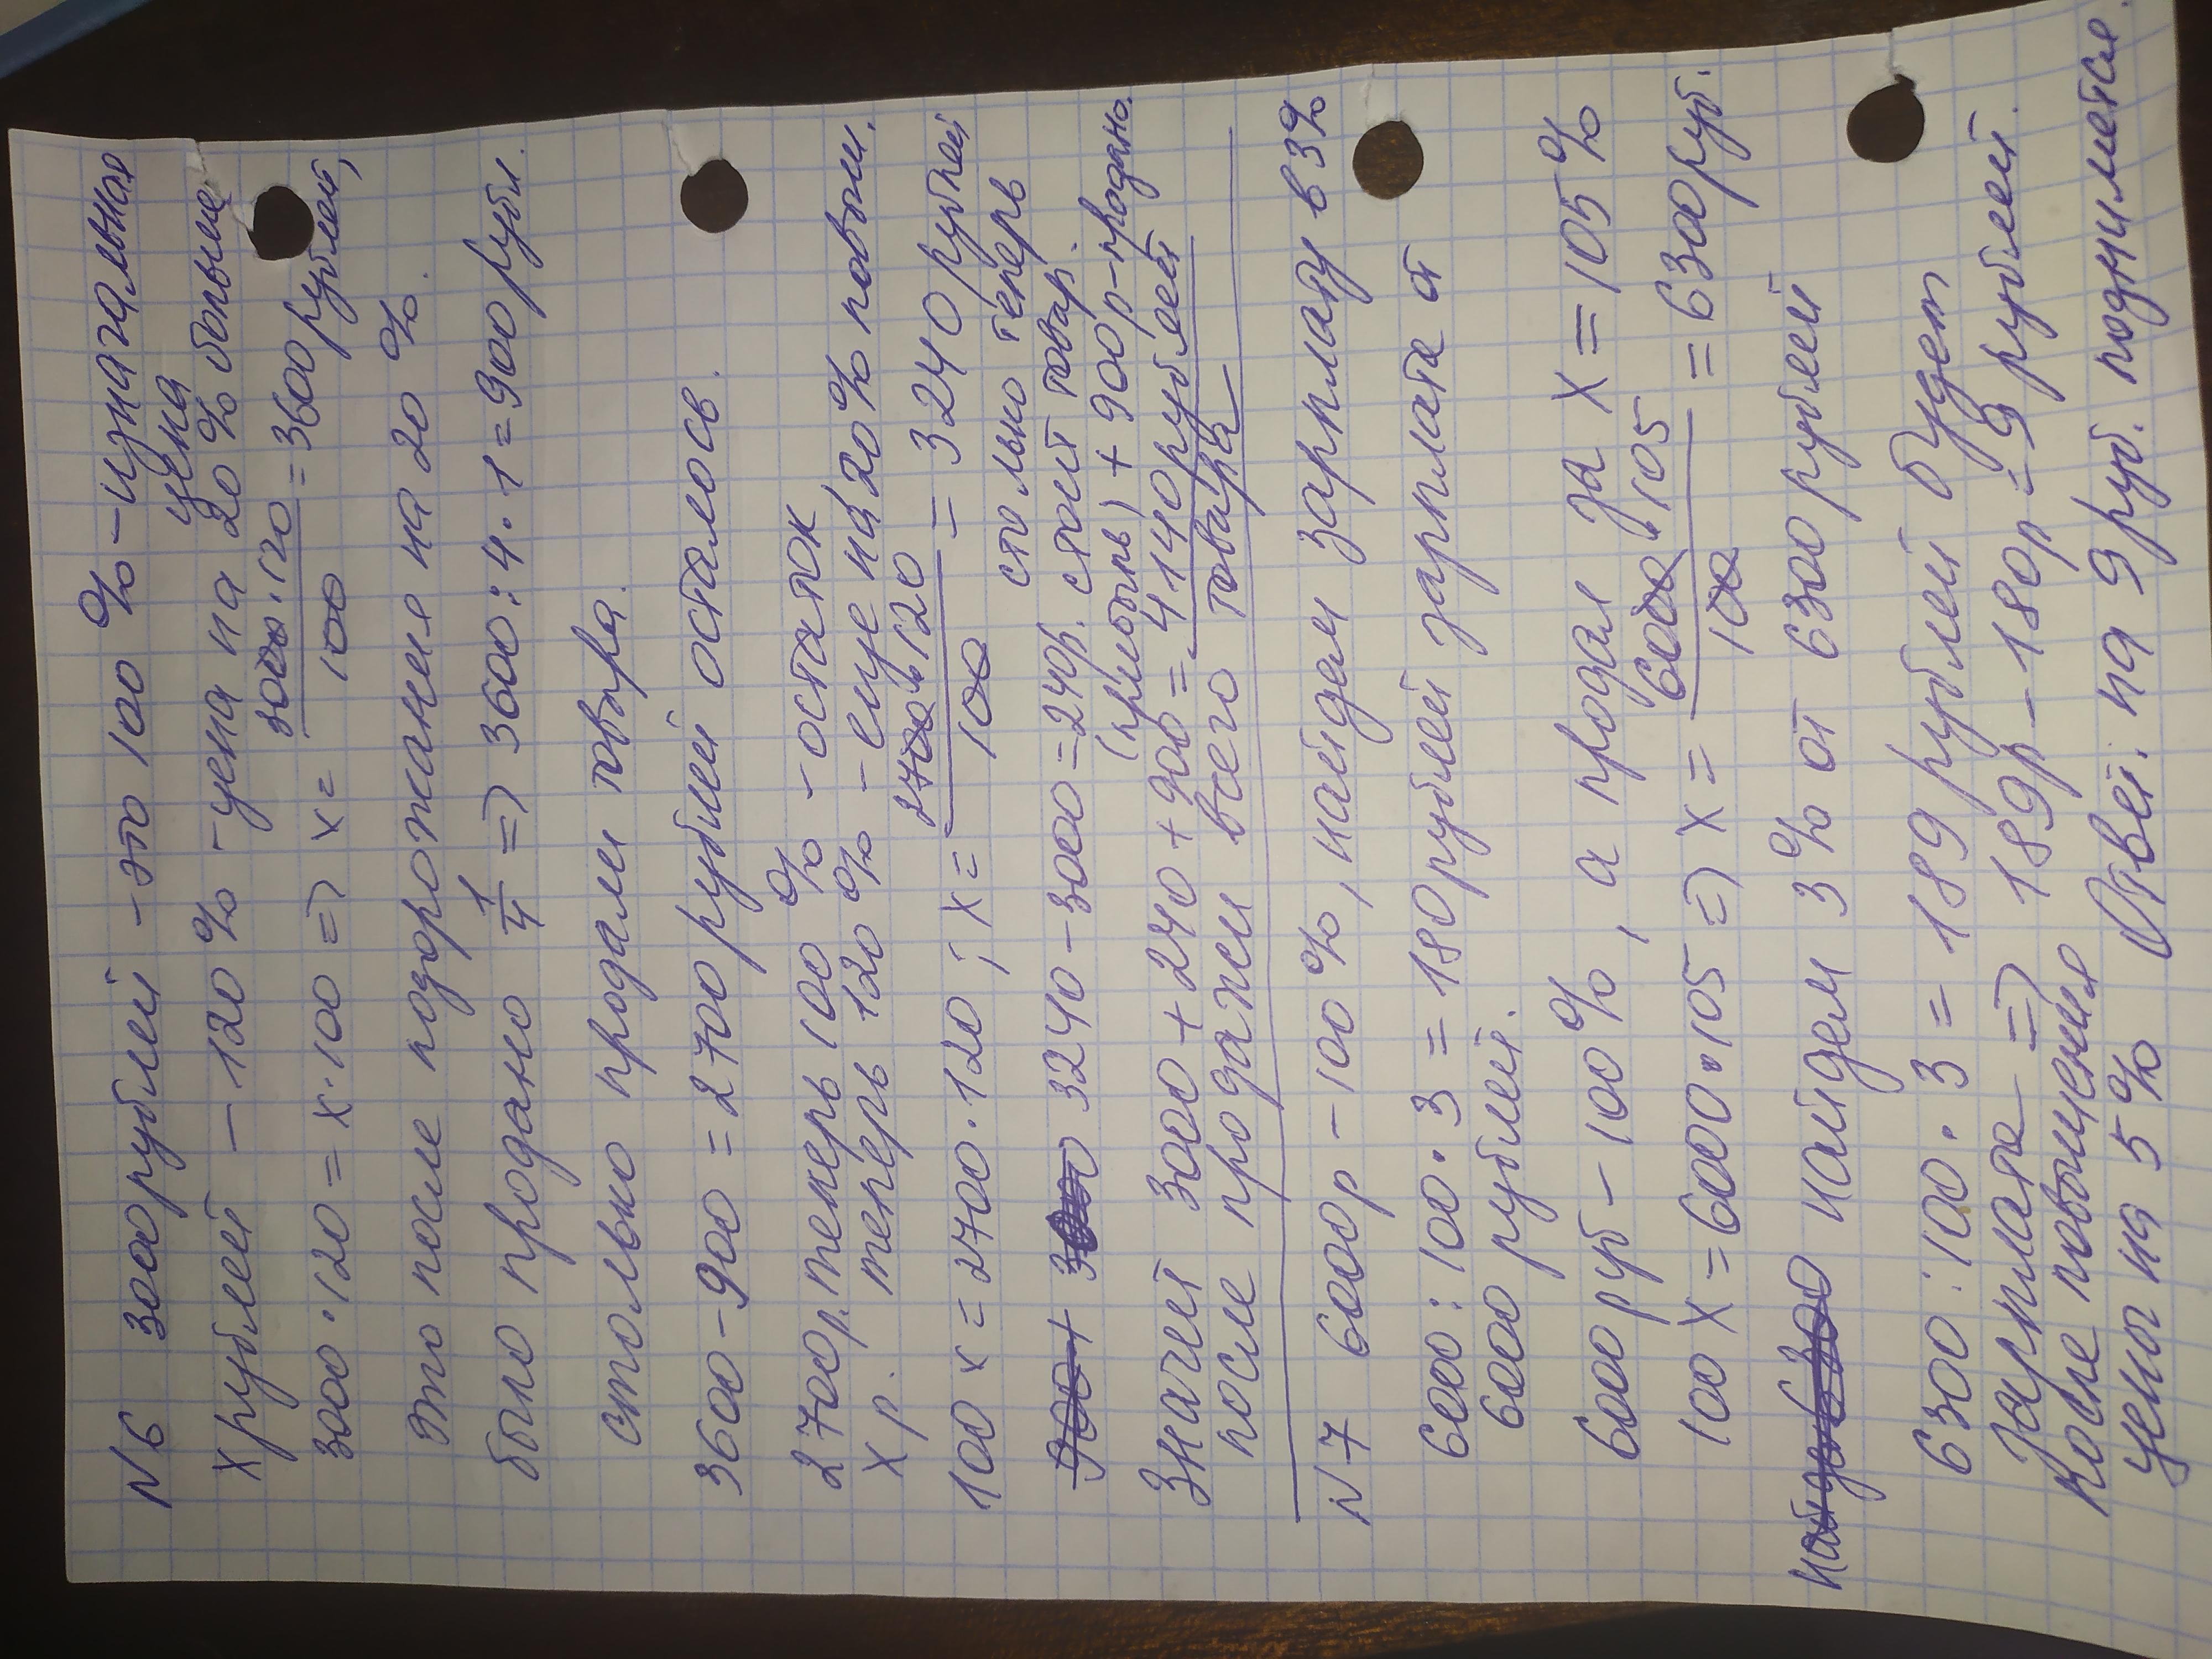 №6 3000 рублей - это 100 % - изначальная цена
х рублей - 120 % - цена на 20 % больше
3000 · 120 = х · 100 => х = 3000 · 120 / 100 = 3600 рублей,
это после подорожания на 20 %.
было продано 1/4 => 3600 : 4 · 1 = 900 рубл.
столько продали товара.
3600 - 900 = 2700 рублей осталось.
2700р. теперь 100 % - остаток
х р. теперь 120 % - еще на 20 % повыш.
100 х = 2700 · 120 ; х = 2700 · 120 / 100 = 3240 рублей
столько теперь стоит товар.
3240 - 3000 = 240р. (прибыль) + 900р - продано.
Значит 3000 + 240 + 900 = 4140 рублей стоит
после продажи всего товара
№7 6000р - 100 %, найдем зарплату в 3%
6000 : 100 · 3 = 180 рублей зарплата от
6000 рублей.
6000 руб - 100 %, а продал за х = 105 %
100 х = 6000 · 105 => х = 6000 · 105 / 100 = 6300 руб.
найдем 3 % от 6300 рублей
6300 : 100 · 3 = 189 рублей будет
зарплата => 189р - 180р = 9 рублей.
после повышения
цены на 5 % Ответ: на 9 руб. поднимется.